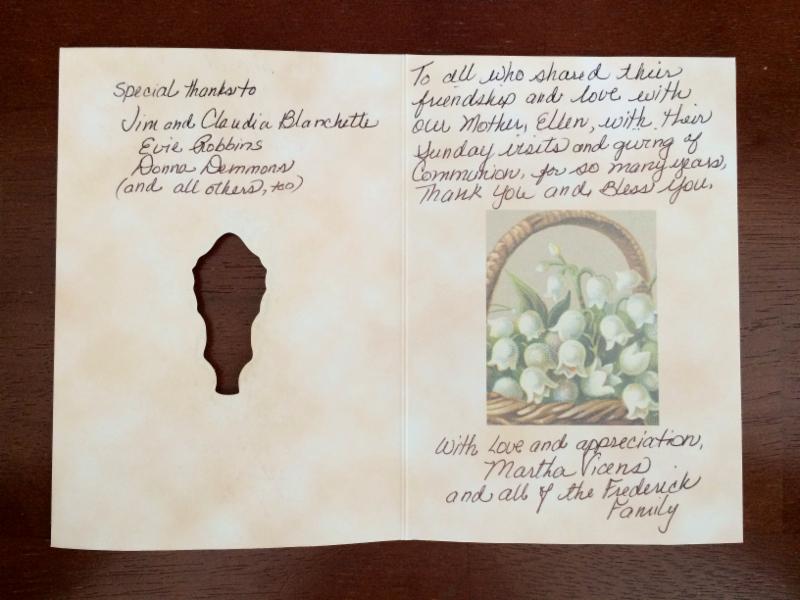 Special thanks to
Jim and Claudia Blanchette
Evie Robbins
Donna Demmons
(and all others, too)
To all who shared their
friendship and love with
our Mother, Ellen, with their
Sunday visits and giving of
Communion, for so many years,
Thank You and Bless You.
With Love and appreciation,
Martha Vicens
and all of the Frederick
Family